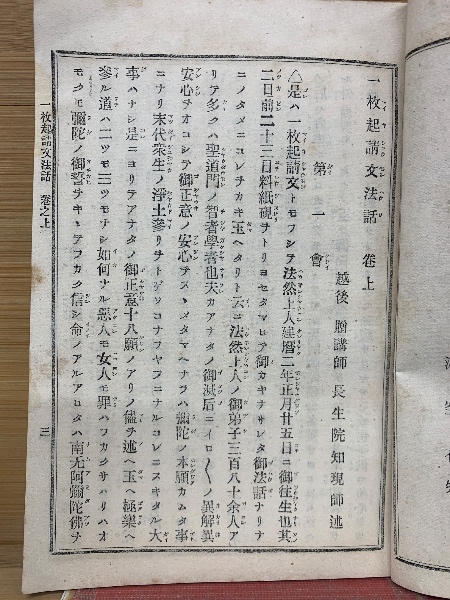 一枚起請文法話 卷上
越後 贈講師 長生院知現師述
第一會
△是ハ一枚起請文トモフシテ法然上人建曆二年正月廿五日ニ御往生也其
二日前二十三日料紙硯ヲトリヨセタマヒテ御カキナサレタ御法話ナリナ
ニノタメニコレヲカキ玉ヘタリト云ニ法然上人ノ御弟子三百八十余人ア
リテ多クハ聖道門ノ智者學者也夫カアナタノ御滅后ニイロ〱ノ異解異
安心ヲオコシテ御正意ノ安心ヲスヽメタマヘナラハ彌陀ノ本願カムタ事
ニナリ末代衆生ノ淨土參リヲトゲソコナフヤフニナルコレニスキタル大
事ハナシ是ニヨリテアナタノ御正意十八願ノアリノ儘ヲ述ヘ玉ヘ極樂ヘ
參ル道ハ二ツモ三ツモナシ如何ナル惡人モ女人モ罪ハフカクサハリハオ
モクモ彌陀ノ御誓ヲキヽテフカク信シ命ノアルアヒタハ南无阿彌陀佛ヲ
一枚起請文法話 卷之上
三